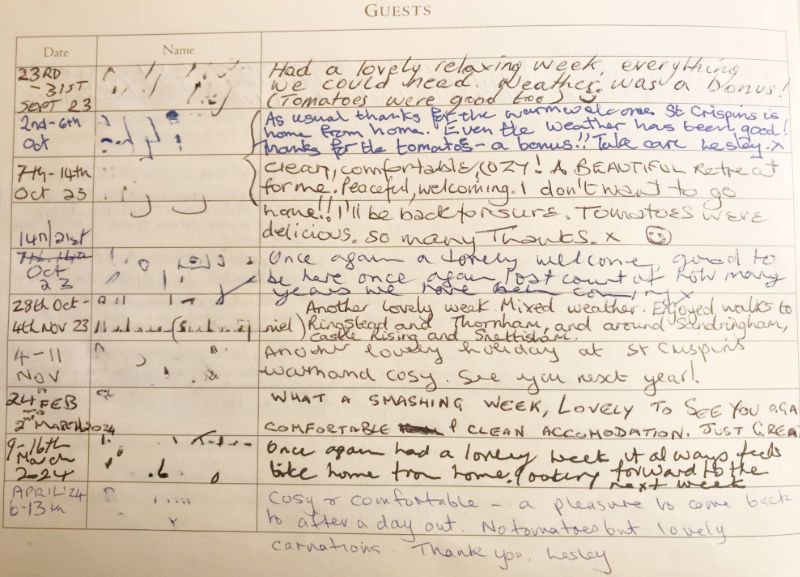 GUESTS
Date Name
23RD Had a lovely relaxing week, everything
- 31ST we could need. Weather was a bonus!
SEPT 23 (Tomatoes were good too
2nd - 6th As usual thanks for the warm welcome. St Crispins is
Oct home from home. Even the weather has been good!
thanks for the tomatos - a bonus!! Take care Lesley. x
7th - 14th Clean, comfortable, COZY! A BEAUTIFUL Retreat
Oct 23 for me. Peaceful, welcoming. I don't want to go
home!! I'll be back for sure. Tomatoes were
14th/21st delicious. So many Thanks. x
7th. 14th Once again a lovely welcome, good to
Oct be here once again, lost count of how many
23 years we have been coming x
28th Oct - Another lovely week. Mixed weather. Enjoyed walks to
4th Nov 23 Ringstead and Thornham, and around Sandringham,
Castle Rising and Snettisham.
4 - 11 Another lovely holiday at St Crispins
NOV warm and cosy. See you next year!
24th FEB WHAT A SMASHING WEEK, LOVELY TO SEE YOU AGA
TO
2nd MARCH 2024 COMFORTABLE & CLEAN ACCOMODATION. JUST GREA
9 - 16th Once again had a lovely week, it always feels
March like home from home. Looking forward to the
2024 next week
APRIL '24 Cosy & comfortable - a pleasure to come back
6-13th to after a day out. No tomatoes but lovely
carnations. Thank you, Lesley